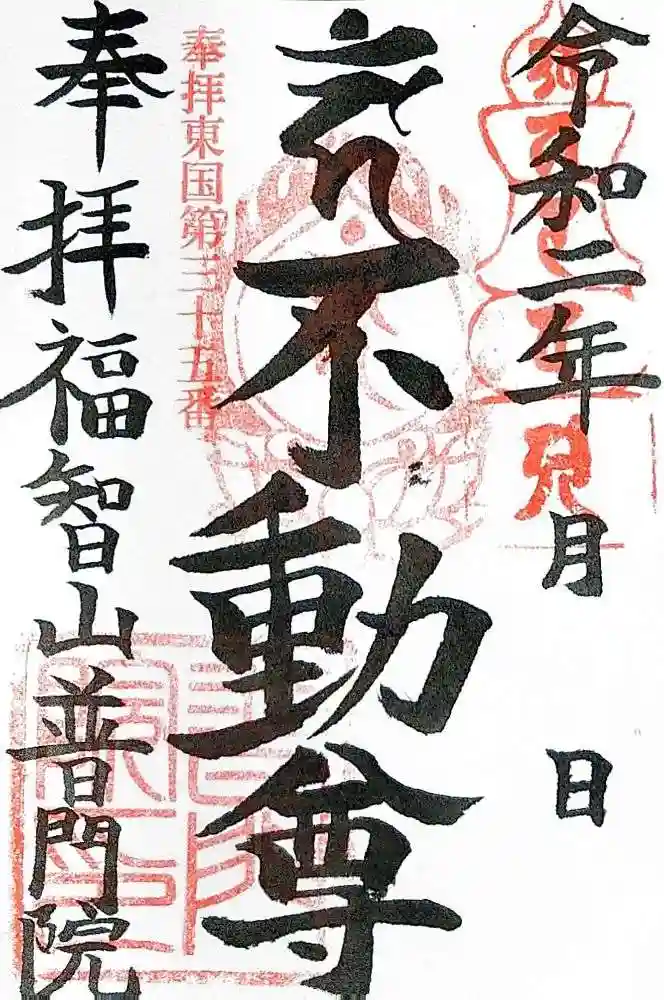 令和二年 月 日
不動尊
奉拝東国第三十五番
奉拝福智山普門院